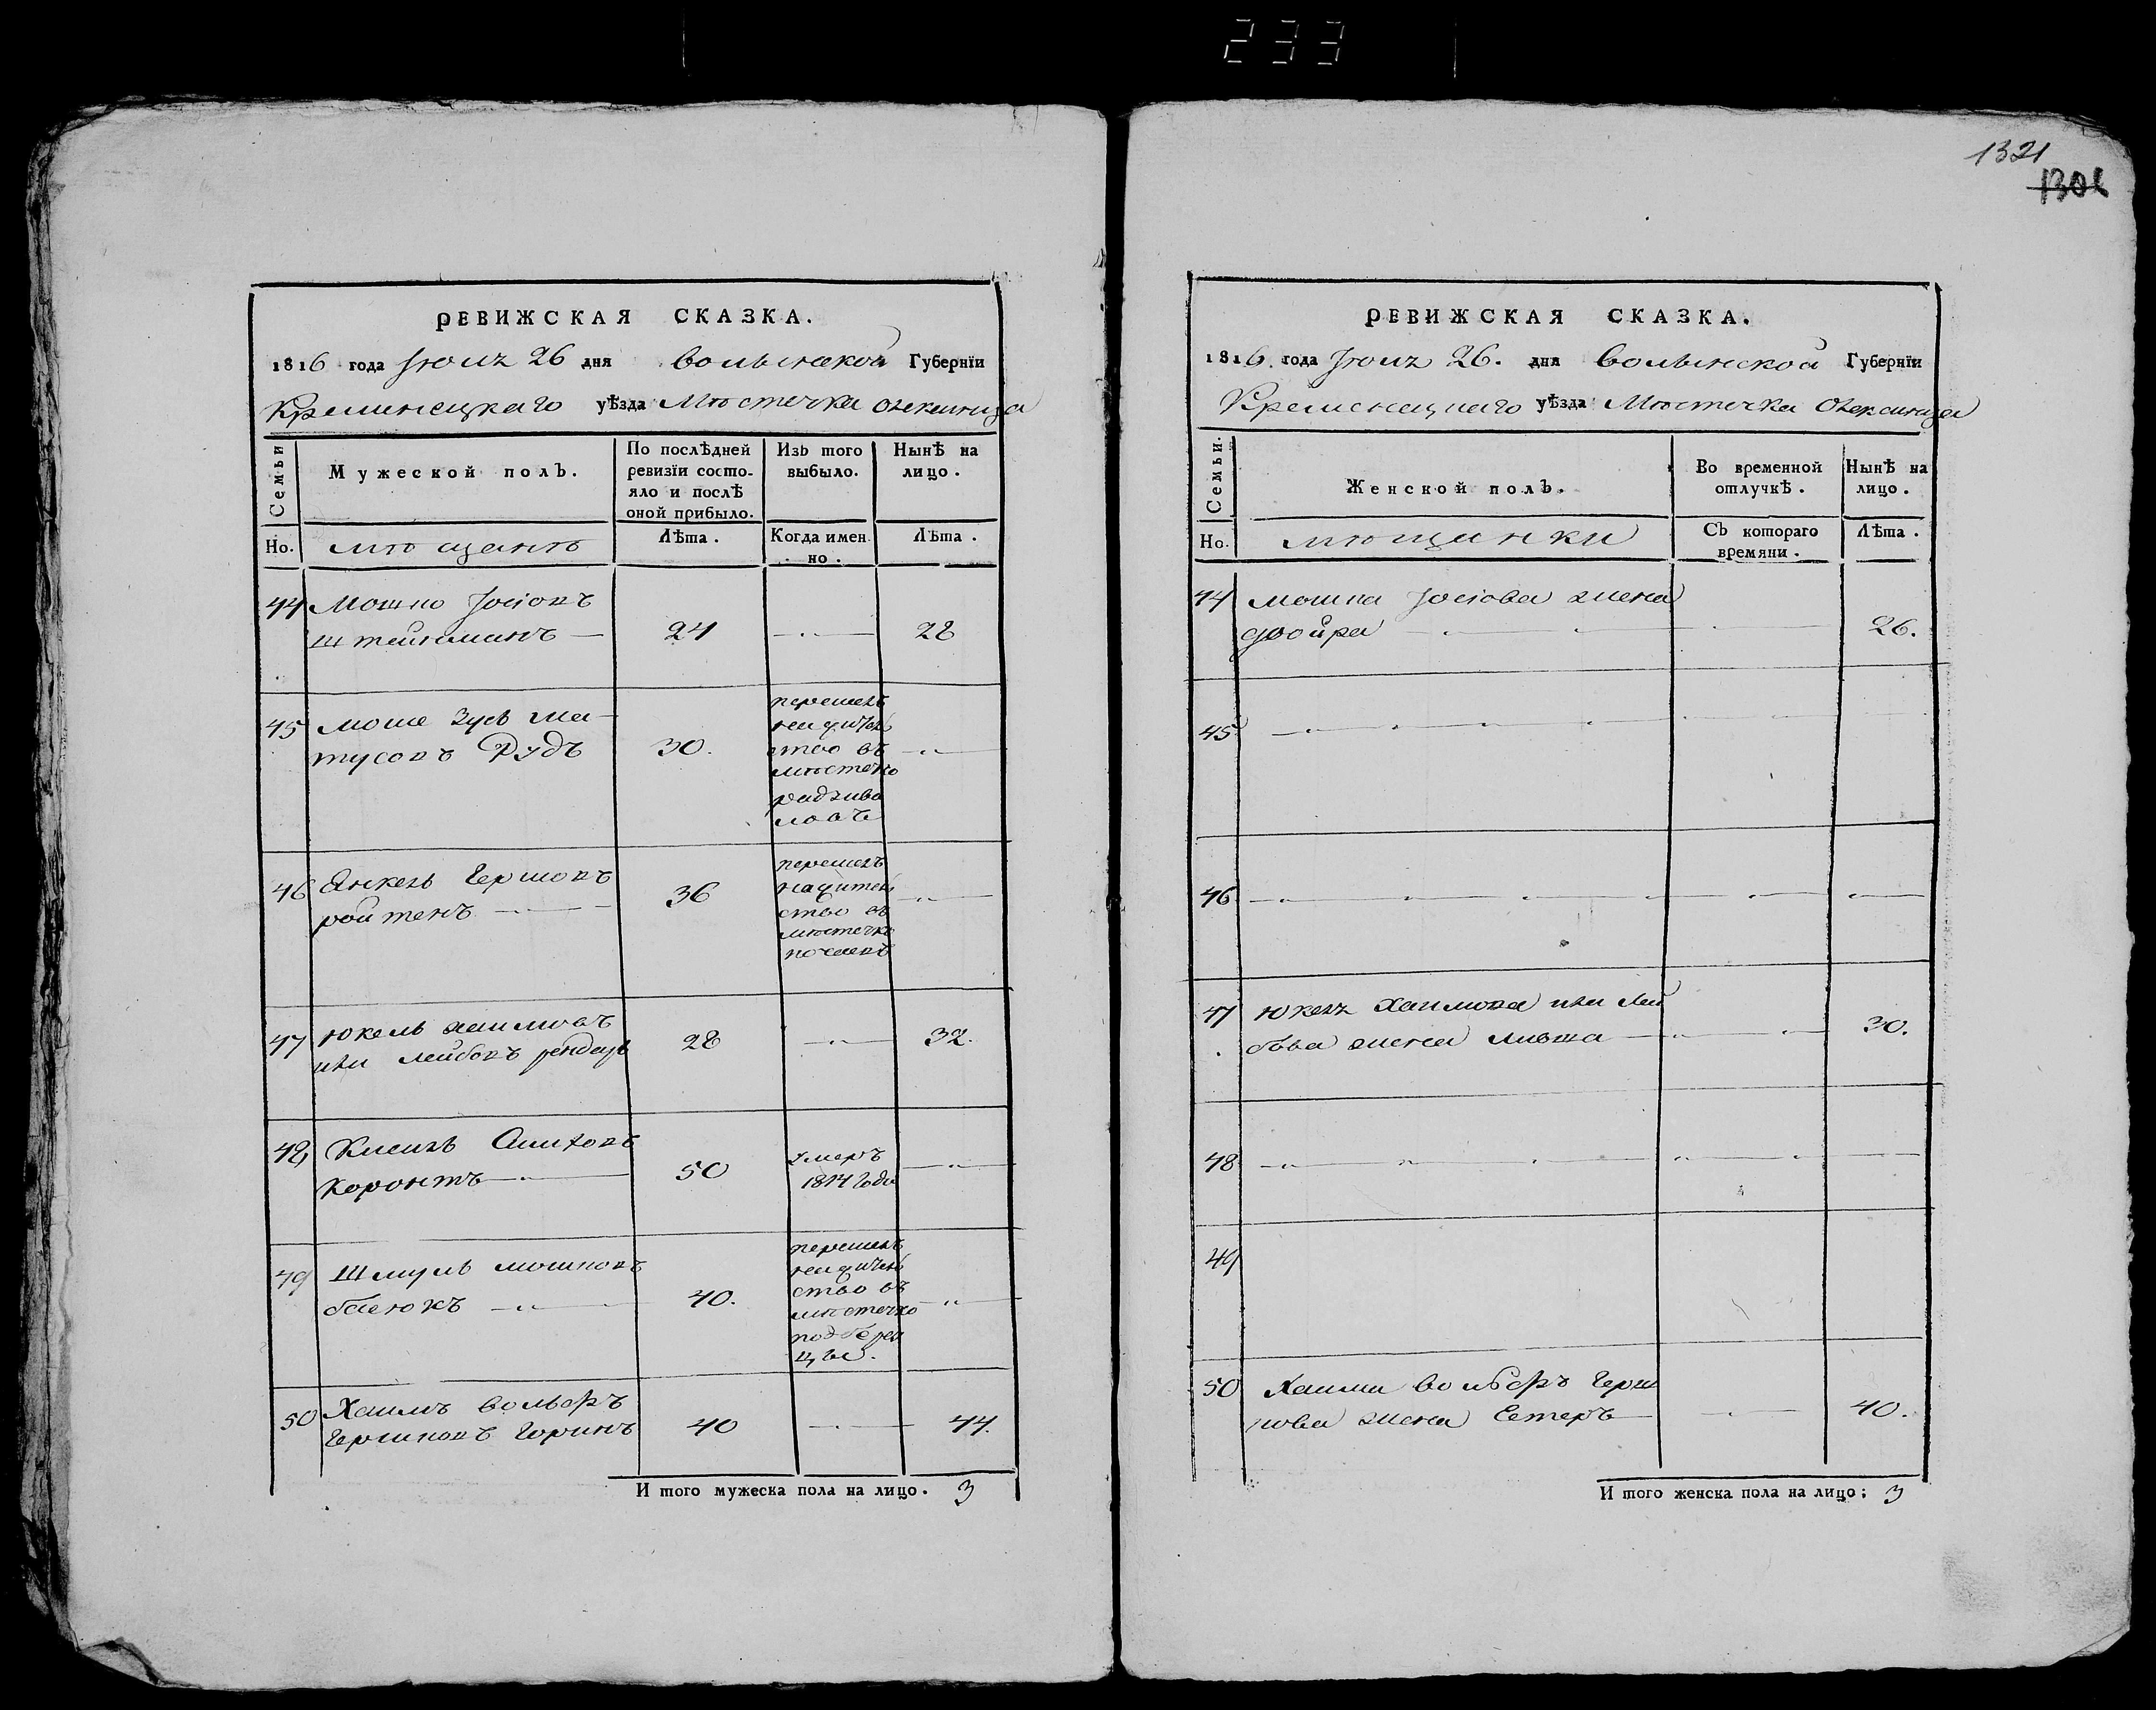 233
РЕВИЖСКАЯ СКАЗКА.
1816 года Июля 26 дня Волынской Губернїи
Кременецкаго уѣзда Мѣстечка Олексинца
Семьи
Мужеской полъ.
По послѣдней ревизїи состо-
яло и послѣ
оной прибыло.
Изъ того
выбыло.
Нынѣ на
лицо.
Но.
мѣщанѣ
Лѣта.
Когда имен
но.
Лѣта.
44 Мошко Іосіовъ
штейнманъ 24 28
45 Моше Зусь Ма-
тусовъ Рудъ 30.
перешелъ
на жител
ство въ
мѣстечко
радзиви
ловъ
46 Янкель Гершовъ
ройтенъ 36
перешелъ
на жител
ство въ
мѣстечко
почаевъ
47 Юкель хаимовъ
или лейбовъ 28 32.
48 Кисиль
коронтъ 50
умеръ
1814 года
49 Шмуль мошковъ
40.
перешелъ
на жител
ство въ
мѣстечко
подбере
цы.
50 Хаимъ вольфъ
Гершковъ Горинъ 40 44.
И того мужеска пола на лицо. 3
1321
РЕВИЖСКАЯ СКАЗКА.
1816. года Июля 26. дня Волынской Губернїи
Кременецкаго уѣзда Мѣстечка Олексинца
Семьи.
Женской полъ.
Во временной
отлучкѣ.
Нынѣ на
лицо.
Но.
мѣщанки
Съ котораго
времяни.
Лѣта.
44 Мошка Іосіова жена
двойра 26.
45
46
47 Юкеля Хаимова или Лей
бова жена Ливша 30.
48
49
50 Хаима вольфъ Герш
кова жена Естеръ 40.
И того женска пола на лицо; 3